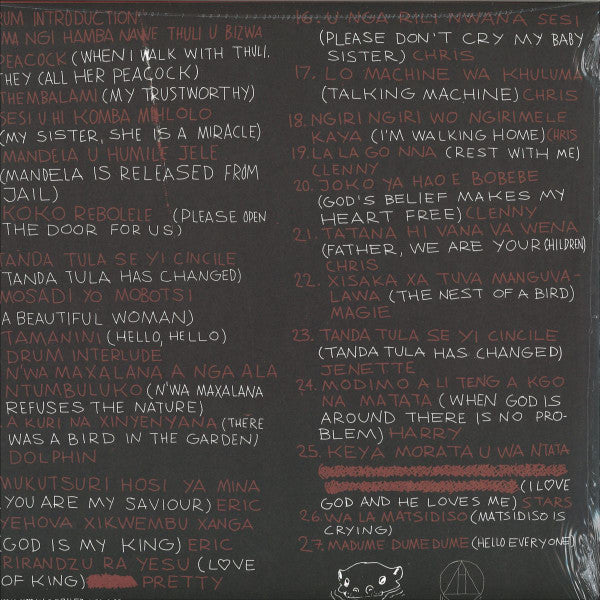 RUM INTRODUCTION
MA NGI HAMBA NAWE THULI U BIZWA
PEACOCK (WHEN I WALK WITH THULI.
THEY CALL HER PEACOCK)
THEMBALAMI (MY TRUSTWORTHY)
SESI U HI KOMBA MHLOLO
(MY SISTER, SHE IS A MIRACLE)
MANDELA U HUMILE JELE
(MANDELA IS RELEASED FROM
JAIL)
KOKO REBOLELE (PLEASE OPEN
THE DOOR FOR US)
TANDA TULA SE YI CINCILE
(TANDA TULA HAS CHANGED)
MOSADI YO MOBOTSI
(A BEAUTIFUL WOMAN)
TAMANINI (HELLO, HELLO)
DRUM INTERLUDE
N'WA MAXALANA A NGA ALA
NTUMBULUKO (N'WA MAXALANA
REFUSES THE NATURE)
. A KURI NA XINYENYANA (THERE
WAS A BIRD IN THE GARDEN)
DOLPHIN
MUKUTSURI HOSI YA MINA
(YOU ARE MY SAVIOUR) ERIC
YEHOVA XIKWEMBU XANGA
(GOD IS MY KING) ERIC
RIRANDZU RA YESU (L♡VE
OF KING) PRETTY
16. U NGA RILI N'WANA SESI
(PLEASE DON'T CRY MY BABY
SISTER) CHRIS
17. LO MACHINE WA KHULUMA
(TALKING MACHINE) CHRIS
18. NGIRI NGIRI WO NGIRIMELE
KAYA (I'M WALKING HOME) CHRIS
19. LA LA GO NNA (REST WITH ME)
CLENNY
20. JOKO YA HAO E BOBEBE
(GOD'S BELIEF MAKES MY
HEART FREE) CLENNY
21. TATANA HI VANA VA WENA
(FATHER, WE ARE YOUR CHILDREN)
CHRIS
22. XISAKA XA TUVA MANGUVA-
LAWA (THE NEST OF A BIRD)
MAGIE
23. TANDA TULA SE YI CINCILE
(TANDA TULA HAS CHANGED)
JENETTE
24. MODIMO A LI TENG A KGO
NA MATATA (WHEN GOD IS
AROUND THERE IS NO PRO-
BLEM) HARRY
25. KEYA MORATA U WA NTATA
(I L♡VE
GOD AND HE LOVES ME) STARS
26. WA LA MATSIDISO (MATSIDISO IS
CRYING)
27. MADUME DUMEDUME (HELLO EVERYONE)